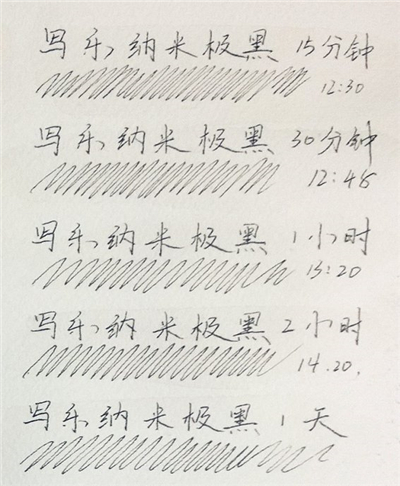 写乐纳米极黑 15分钟
12:30
写乐纳米极黑 30分钟
12:48
写乐纳米极黑 1小时
13:20
写乐纳米极黑 2小时
14.20.
写乐纳米极黑 1天